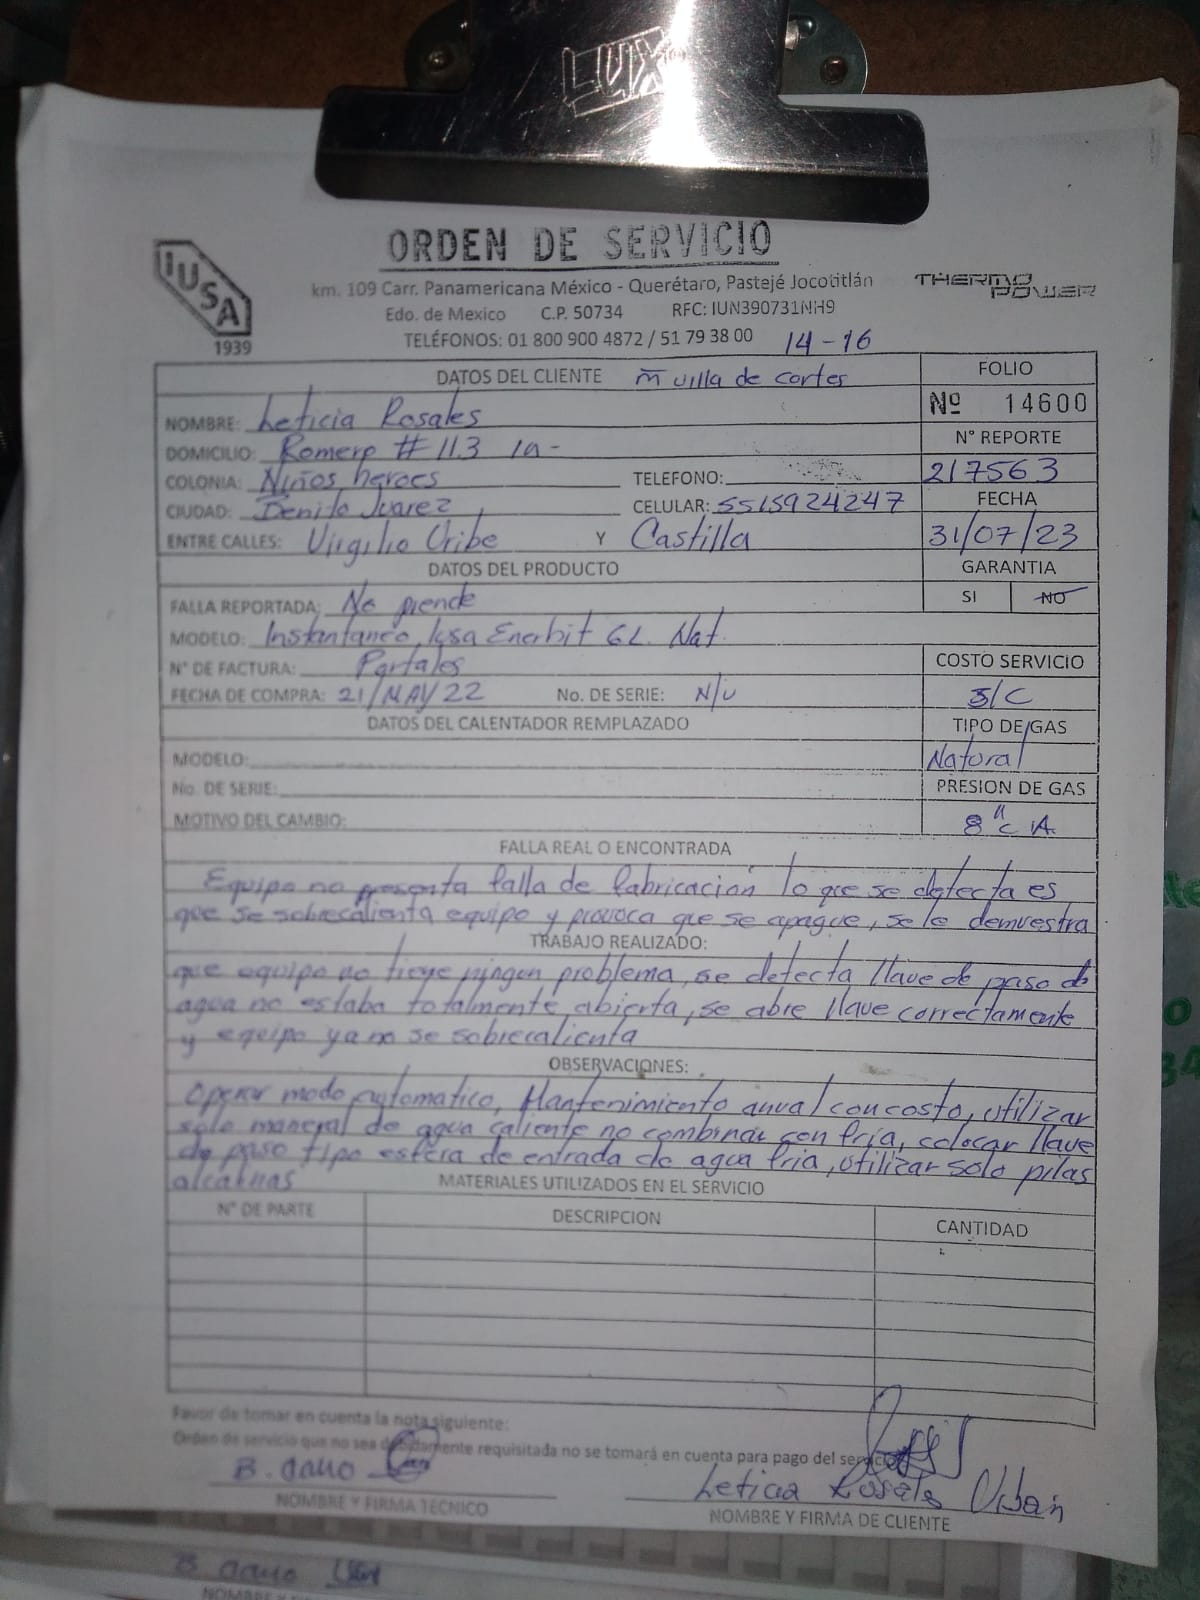 LUX
ORDEN DE SERVICIO
IUSA
1939
km. 109 Carr. Panamericana México - Querétaro, Pastejé Jocotitlán
THERMO POWER
Edo. de Mexico C.P. 50734 RFC: IUN390731NH9
TELÉFONOS: 01 800 900 4872 / 51 79 38 00 14-16
DATOS DEL CLIENTE m villa de cortes
FOLIO
Nº 14600
NOMBRE: Leticia Rosales
N° REPORTE
DOMICILIO: Romero # 113 1a-
217563
COLONIA: Niños heroes TELEFONO:
FECHA
CIUDAD: Benito Juarez CELULAR: 5515924247
31/07/23
ENTRE CALLES: Virgilio Uribe Y Castilla
DATOS DEL PRODUCTO
GARANTIA
SI NO
FALLA REPORTADA: No prende
MODELO: Instantaneo Iusa Enerbit 6L. Nat.
N° DE FACTURA: Portales
COSTO SERVICIO
FECHA DE COMPRA: 21/MAY/22 No. DE SERIE: N/V
S/C
DATOS DEL CALENTADOR REMPLAZADO
TIPO DE GAS
MODELO:
Natural
No. DE SERIE:
PRESION DE GAS
MOTIVO DEL CAMBIO:
8" C A.
FALLA REAL O ENCONTRADA
Equipo no presenta falla de fabricacion lo que se detecta es
que se sobrecalienta equipo y provoca que se apague, se le demuestra
TRABAJO REALIZADO:
que equipo no tiene ningun problema, se detecta llave de paso de
agua no estaba totalmente abierta, se abre llave correctamente
y equipo ya no se sobrecalienta
OBSERVACIONES:
Operar modo automatico, Mantenimiento anual con costo, utilizar
solo maneral de agua caliente no combinar con fria, colocar llave
de paso tipo esfera de entrada de agua fria, utilizar solo pilas
alcalinas
MATERIALES UTILIZADOS EN EL SERVICIO
N° DE PARTE DESCRIPCION CANTIDAD
Favor de tomar en cuenta la nota siguiente:
Orden de servicio que no sea debidamente requisitada no se tomará en cuenta para pago del servicio
B. Cano
Leticia Rosales Urban
NOMBRE Y FIRMA TECNICO
NOMBRE Y FIRMA DE CLIENTE
B. Cano